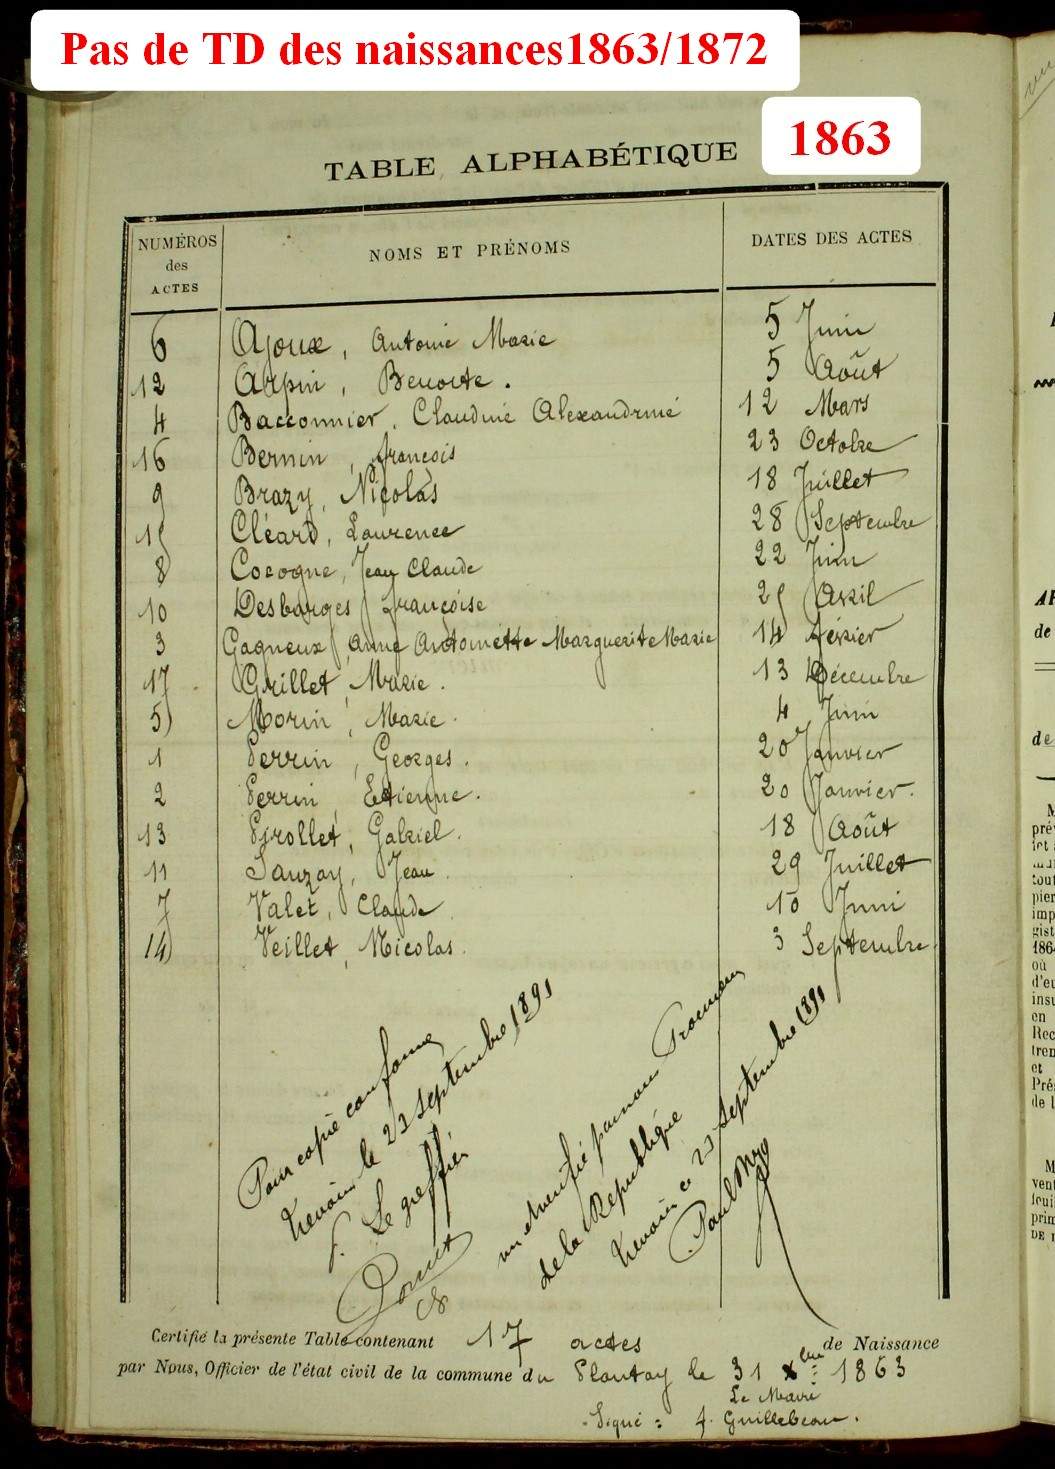 Pas de TD des naissances1863/1872
1863
TABLE ALPHABÉTIQUE
NUMÉROS des ACTES NOMS ET PRÉNOMS DATES DES ACTES
6 Ajoux, Antoine Marie 5 Juin
12 Arpin, Benoite. 5 Août
4 Bacconnier, Claudine Alexandrine 12 Mars
16 Bernin, francois 23 Octobre
9 Brazy, Nicolas 18 Juillet
15 Cléard, Laurence 28 Septembre
8 Cocogne, Jean Claude 22 Juin
10 Desbarges françoise 25 Avril
3 Gagneux, Anne Antoinette Marguerite Marie 14 février
17 Grillet, Marie. 13 Décembre
5 Morin, Marie. 4 Juin
1 Perrin, Georges. 20 Janvier
2 Perrin Etienne. 20 Janvier.
13 Pirollet, Gabriel. 18 Août
11 Sauzay, Jean. 29 Juillet
7 Valet, Claude 10 Juin
14 Veillet, Nicolas. 3 Septembre.
Pour copie conforme
Trevoux le 23 septembre 1891
Le greffier
vu et vérifié par nous Procureur
de la République
Trevoux ce 23 septembre 1891
Paul
Certifié la présente Table contenant 17 actes de Naissance
par Nous, Officier de l'état civil de la commune du Plantay le 31 Xbre 1863
Le Maire
Signé : f. Guillebeau.